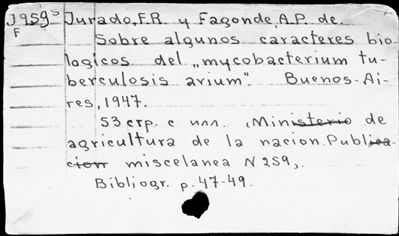 J959s Jurado, F.R. y Fagonde, A.P. de.
F
Sobre algunos caracteres bio-
logicos del „mycobacterium tu-
berculosis avium". Buenos-Ai-
res, 1947.
53 стр. с илл. (Ministerio de
agricultura de la nacion. Publica-
cion miscelanea N 259).
Bibliogr. p. 47-49.